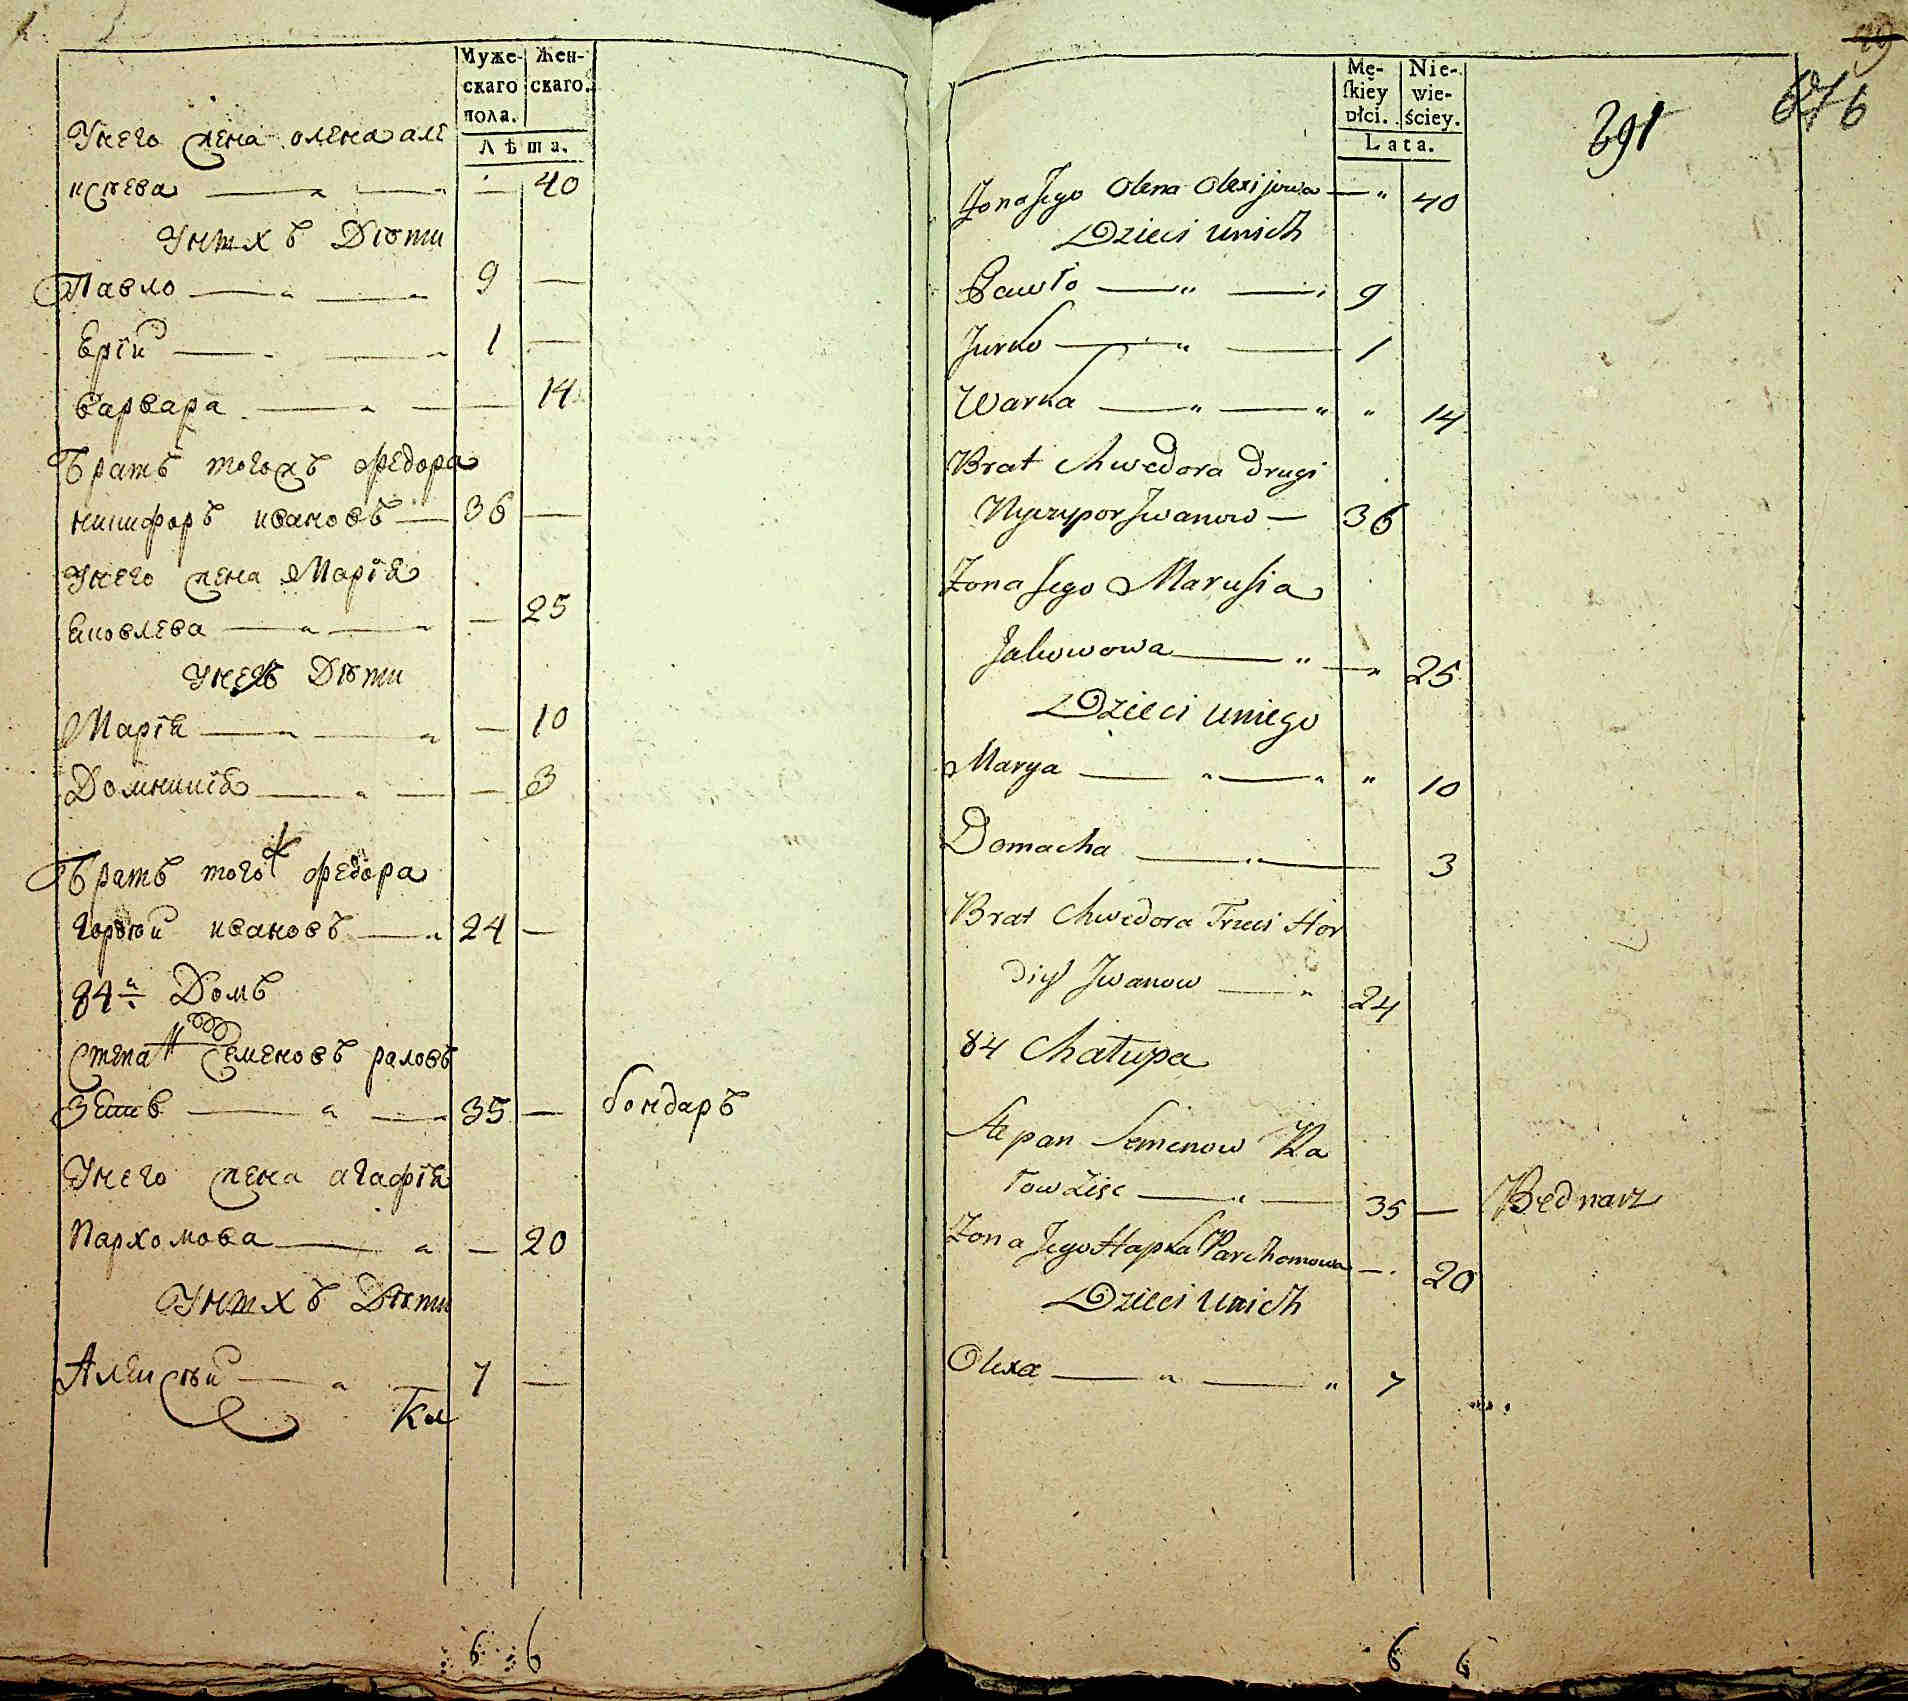 Муже-
скаго
пола.
Жен-
скаго.
Лѣта.
Унего жена олена але
иѣева — " — " — 40
Унихъ Дѣти
Павло — " — " 9 —
Ерїй — " — " 1 —
варвара — " — — 14
Братъ тогожъ Федора
никифоръ ивановъ — 36 —
Унего жена Марїя
яковлева — " — " — 25
Унего Дѣти
Марїя — " — " — 10
Домникїя — " — — 3
Братъ того ж Федора
гордѣй ивановъ — " 24 —
84й Домъ
Степан Семеновъ раловъ
— " — 35 — бондаръ
Унего жена агафїя
Пархомова — " — 20
Унихъ Дѣти
Алексѣй — " — 7 —
6 6
49
Mę-
skiey
płci.
Nie-
wie-
ściey.
Lata.
291
Żona Jego Olena Olexijowa — " 40
Dzieci unich
Pawło — " — " 9
Jurko — " — 1
Warka — " — " " 14
Brat Chwedora Drugi
Nyczypor Jwanow — 36
Żona Jego Marusia
Jakowowa — " — " 25
Dzieci uniego
Marya — " — " " 10
Domacha — " — 3
Brat Chwedora Trzeci Hor
diy Jwanow — " 24
84 Chałupa
Stepan Semenow Ra
— " — 35 — Bednarz
Żona Jego Hapka Parchomowa — . 20
Dzieci Unich
Olexa — " — " 7
6 6